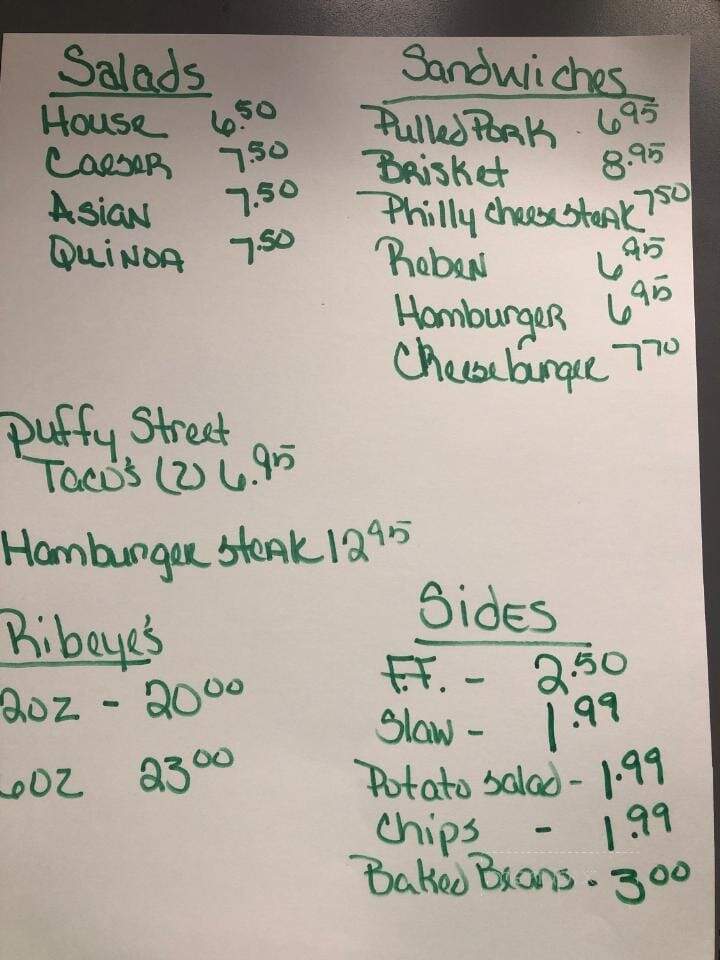 Salads
House 6.50
Caeser 7.50
Asian 7.50
Quinoa 7.50
Sandwiches
Pulled Pork 6.95
Brisket 8.95
Philly cheese steak 7.50
Reben 6.95
Hamburger 6.95
Cheeseburger 7.70
Puffy Street
Taco's (2) 6.95
Hamburger steak 12.95
Ribeye's
2oz - 20.00
6oz 23.00
Sides
F.F. - 2.50
Slaw - 1.99
Potato salad - 1.99
Chips - 1.99
Baked Beans - 3.00